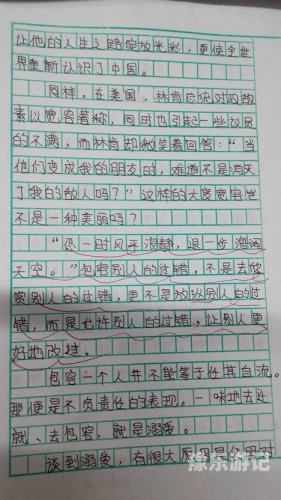 让他的人生之路绽放光彩，更使全世
界重新认识了中国。
同样，在美国，林肯总统对政敌
素以宽容著称，同时也引起一些议员
的不满，而林肯却微笑着回答：“当
他们变成我的朋友时，难道不是消灭
了我的敌人吗？”这样的大度宽容岂
不是一种美丽吗？
“忍一时风平浪静，退一步海阔
天空。”包容别人的过错，不是去放
别人的过错，更不是放纵别人的过
错，而是允许别人的过错，让别人更
好地改过。
包容一个人并不能等于任其自流。
那便是不负责任的表现。一味地去迁
就、去包容，就是溺爱。
谈到溺爱，有很大原因是
豫东游记